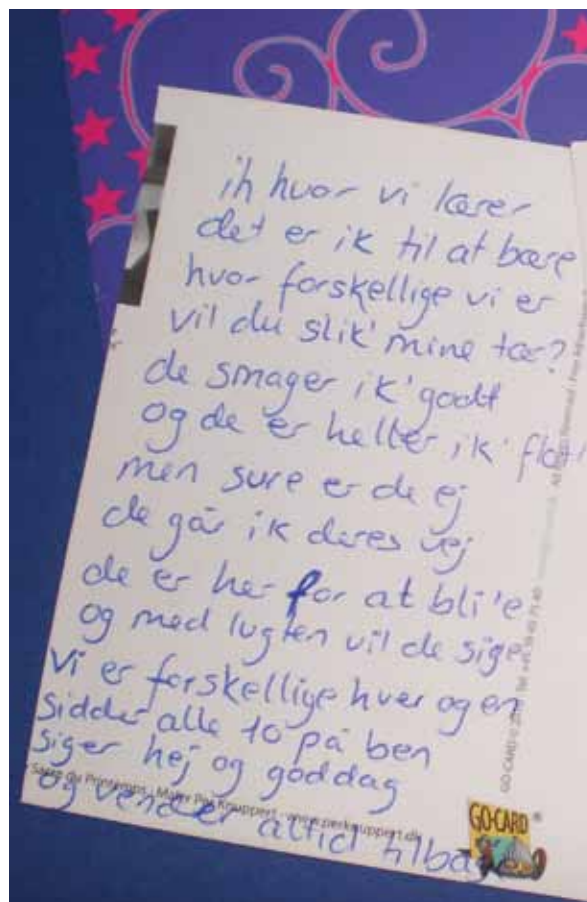 ih hvor vi lærer
det er ik til at bære
hvor forskellige vi er
vil du slik' mine tæer?
de smager ik' godt
og de er heller ik' flot
men sure er de ej
de går ik deres vej
de er her for at bli'e
og med lugten vil de sige
vi er forskellige hver og en
sidder alle 10 på ben
siger hej og goddag
og vender altid tilbage
du Printemps · Maler Per Knuppert · www.perknuppert.dk
GO-CARD ®
GO-CARD ©